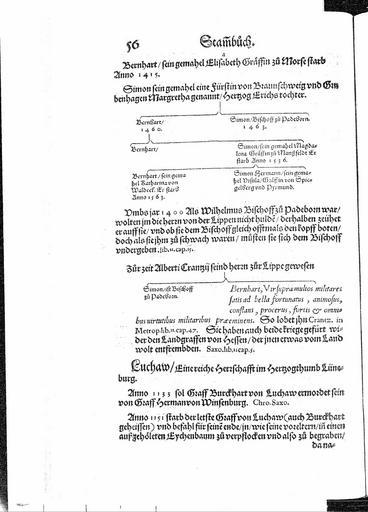 56 Stam̃bůch.
Bernhart / sein gemahel Elisabeth Gräffin zů Morse starb
Anno 1415.
Simon sein gemahel eine Fürstin von Braunschweig vnd Gru
benhagen Margretha genannt / Hertzog Erichs tochter.
Bernhart /
1460.
Simon / Bischoff zů Padeborn.
1463.
Bernhart /
Simon / sein gemahel Magda-
lena Gräfin zů Manßfeldt Er
starb Anno 1536.
Bernhart / sein gema
hel Katharina von
Waldeck. Er starb
Anno 1563.
Simon Herman / sein gema-
hel Vrsula / Gräfin von Spie-
gelberg vnd Pyrmund.
Vmbs jar 1400 Als Wilhelmus Bischoff zů Padeborn war /
wolten jm die herrn von der Lippe nicht hulde / derhalben zeühet
er auff sie / vnd ob sie dem Bischoff gleich offtmals den kopff boten /
doch als sie jhm zů schwach waren / müsten sie sich dem Bischoff
vndergeben. lib.11.cap.15.
Zůr zeit Alberti Crantzij seind herrn zůr Lippe gewesen
Simon / ist Bischoff
zů Padeborn.
Bernhart, Vir supra mulios militares
satis ad bella fortunatus, animosus,
constans, procerus, fortis & omni-
bus virtutibus militaribus præeminens. So lobet jhn Crantz. in
Metrop. lib.11.cap.47. Sie haben auch beide kriege gefürt wi-
der den Landgraffen von Hessen / der jnen etwas von Land
wolt entfrembden. Saxo.lib.11.cap.5.
Luchaw / Eine reiche Herrschafft im Hertzogthumb Lüne-
burg.
Anno 1133 sol Graff Burckhart von Luchaw ermordet sein
von Graff Herman von Winsenburg. Chro. Saxo.
Anno 1151 starb der letste Graff von Luchaw (auch Burckhart
geheissen) vnd befahl für seinẽ ende / jn / wie seine voreltern / in einen
außgehölerten Eychenbaum zů verpflocken vnd also zů begraben /
da na-